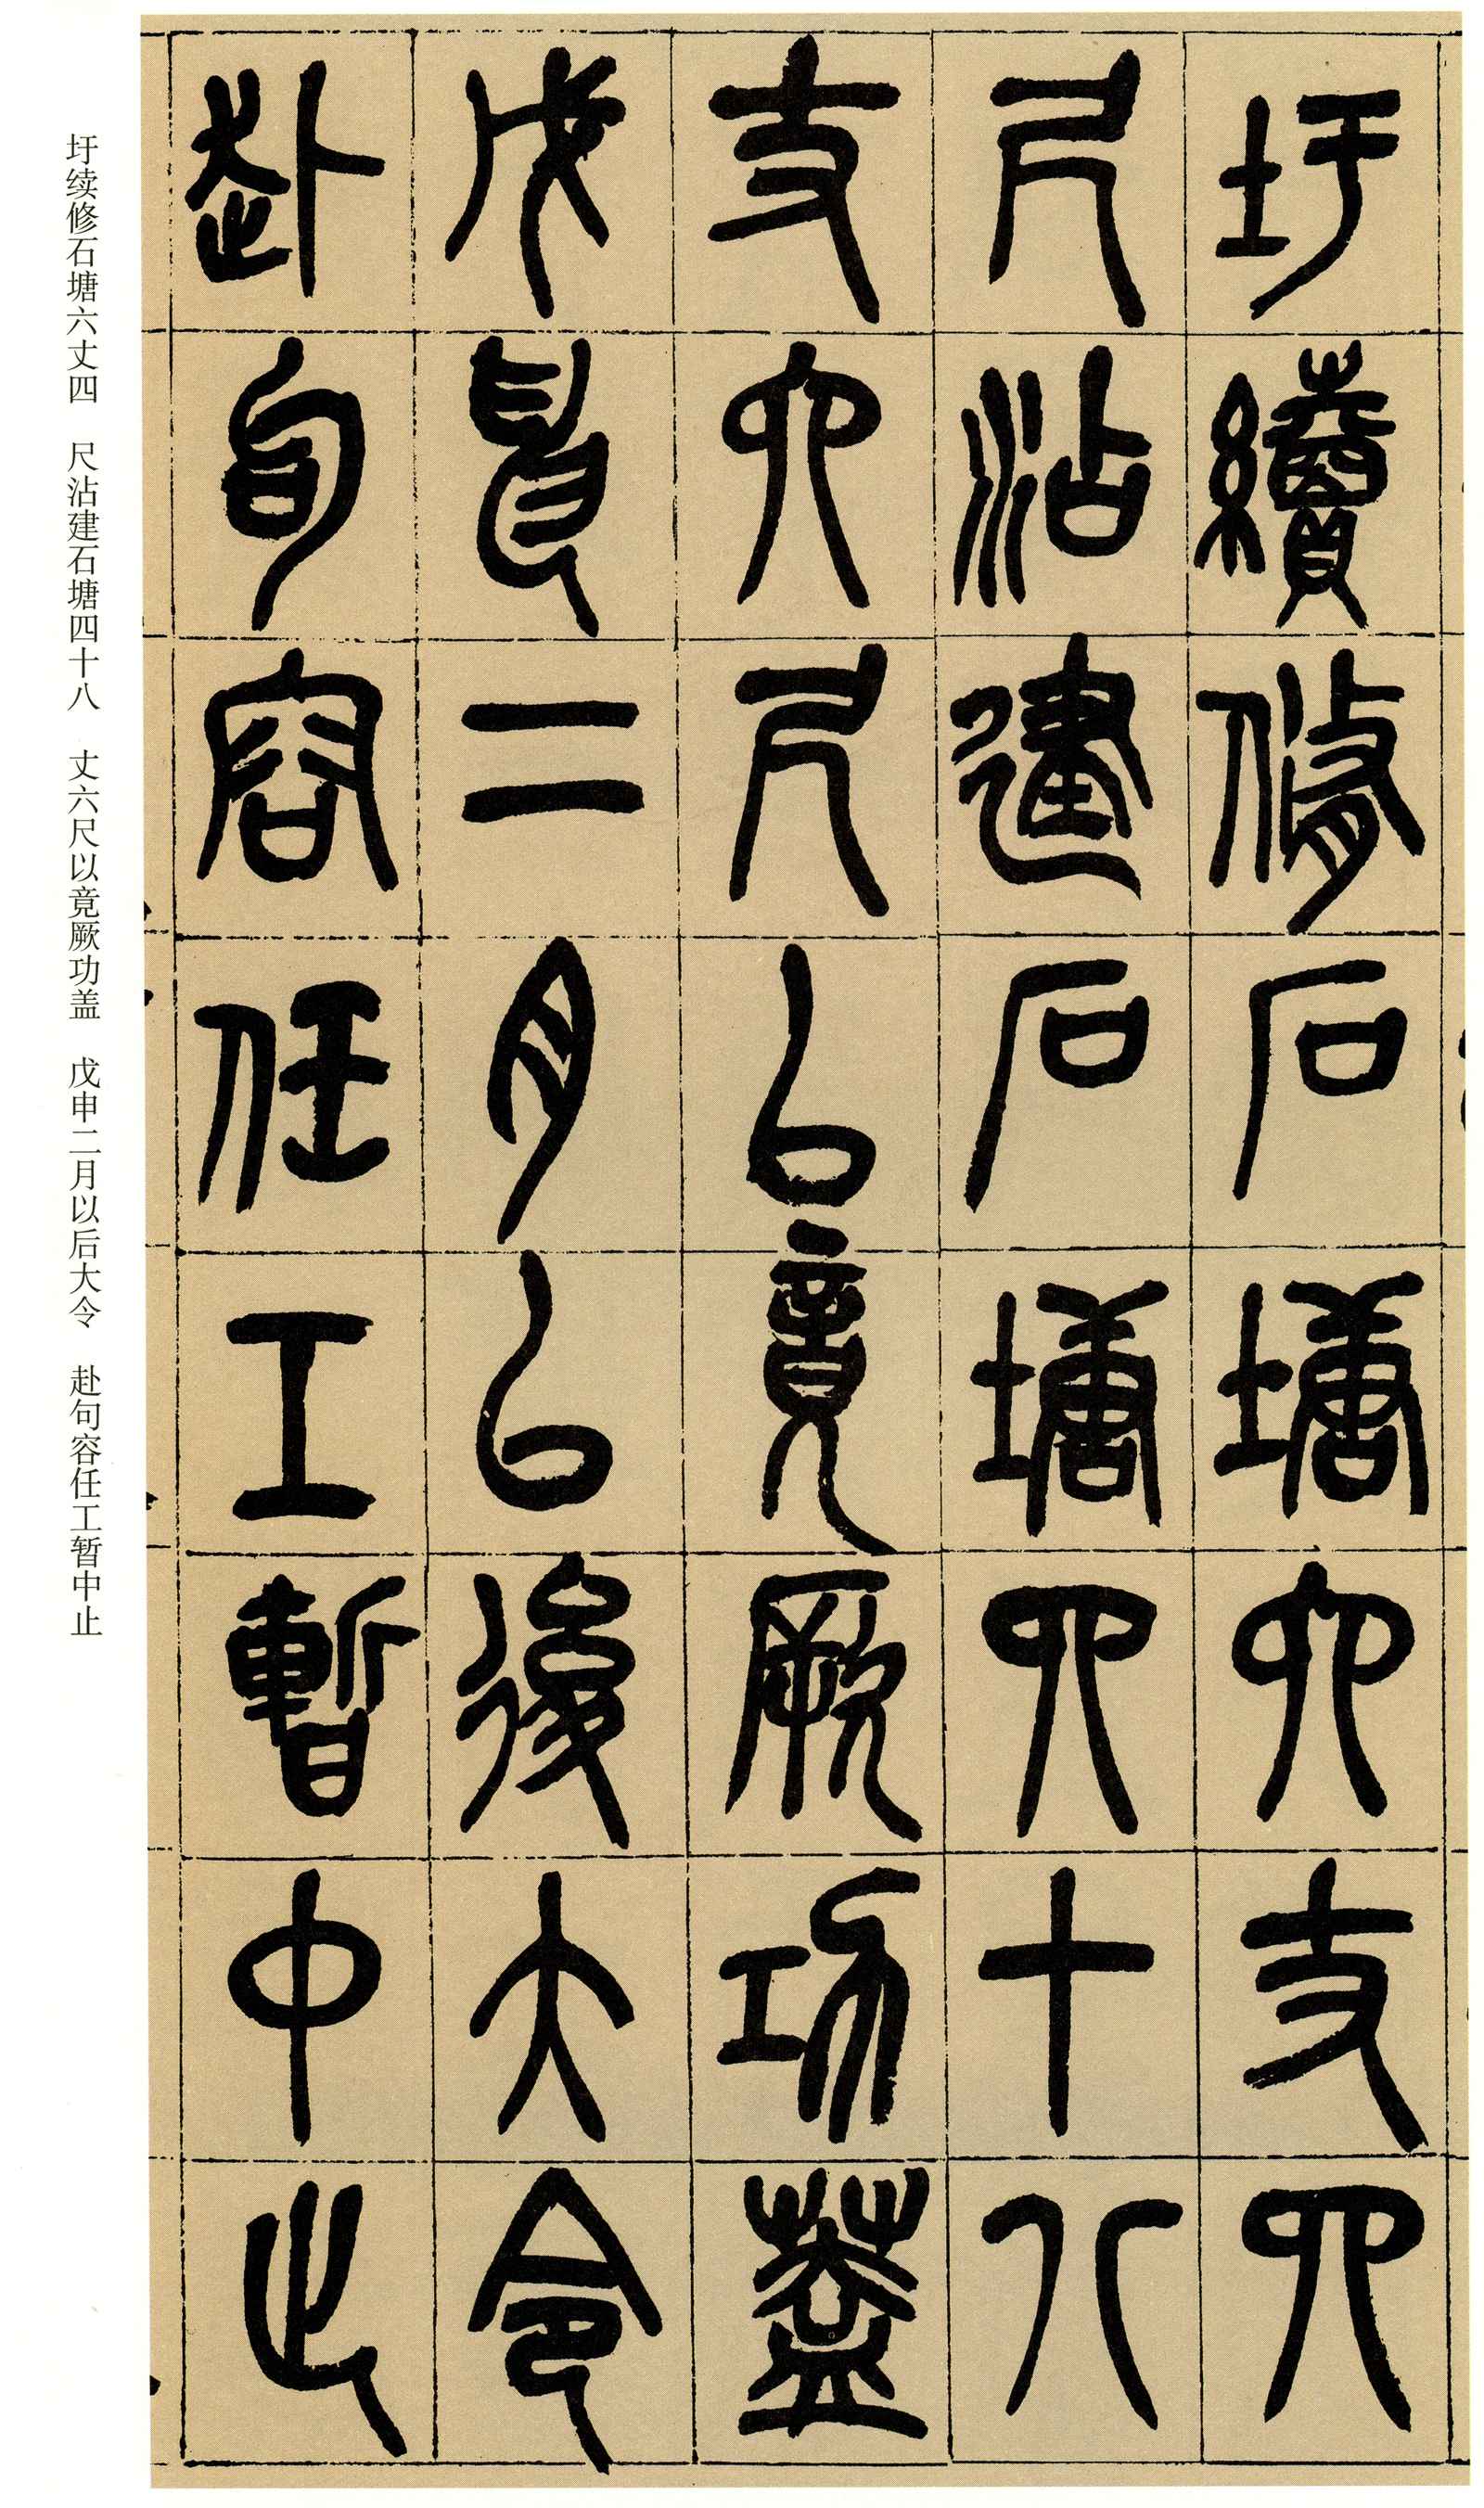 圩續修石塘六丈四
尺沾建石塘四十八
丈六尺以竟厥功蓋
戊申二月以後大令
赴句容任工暫中止
圩续修石塘六丈四　尺沾建石塘四十八　丈六尺以竟厥功盖　戊申二月以后大令　赴句容任工暂中止